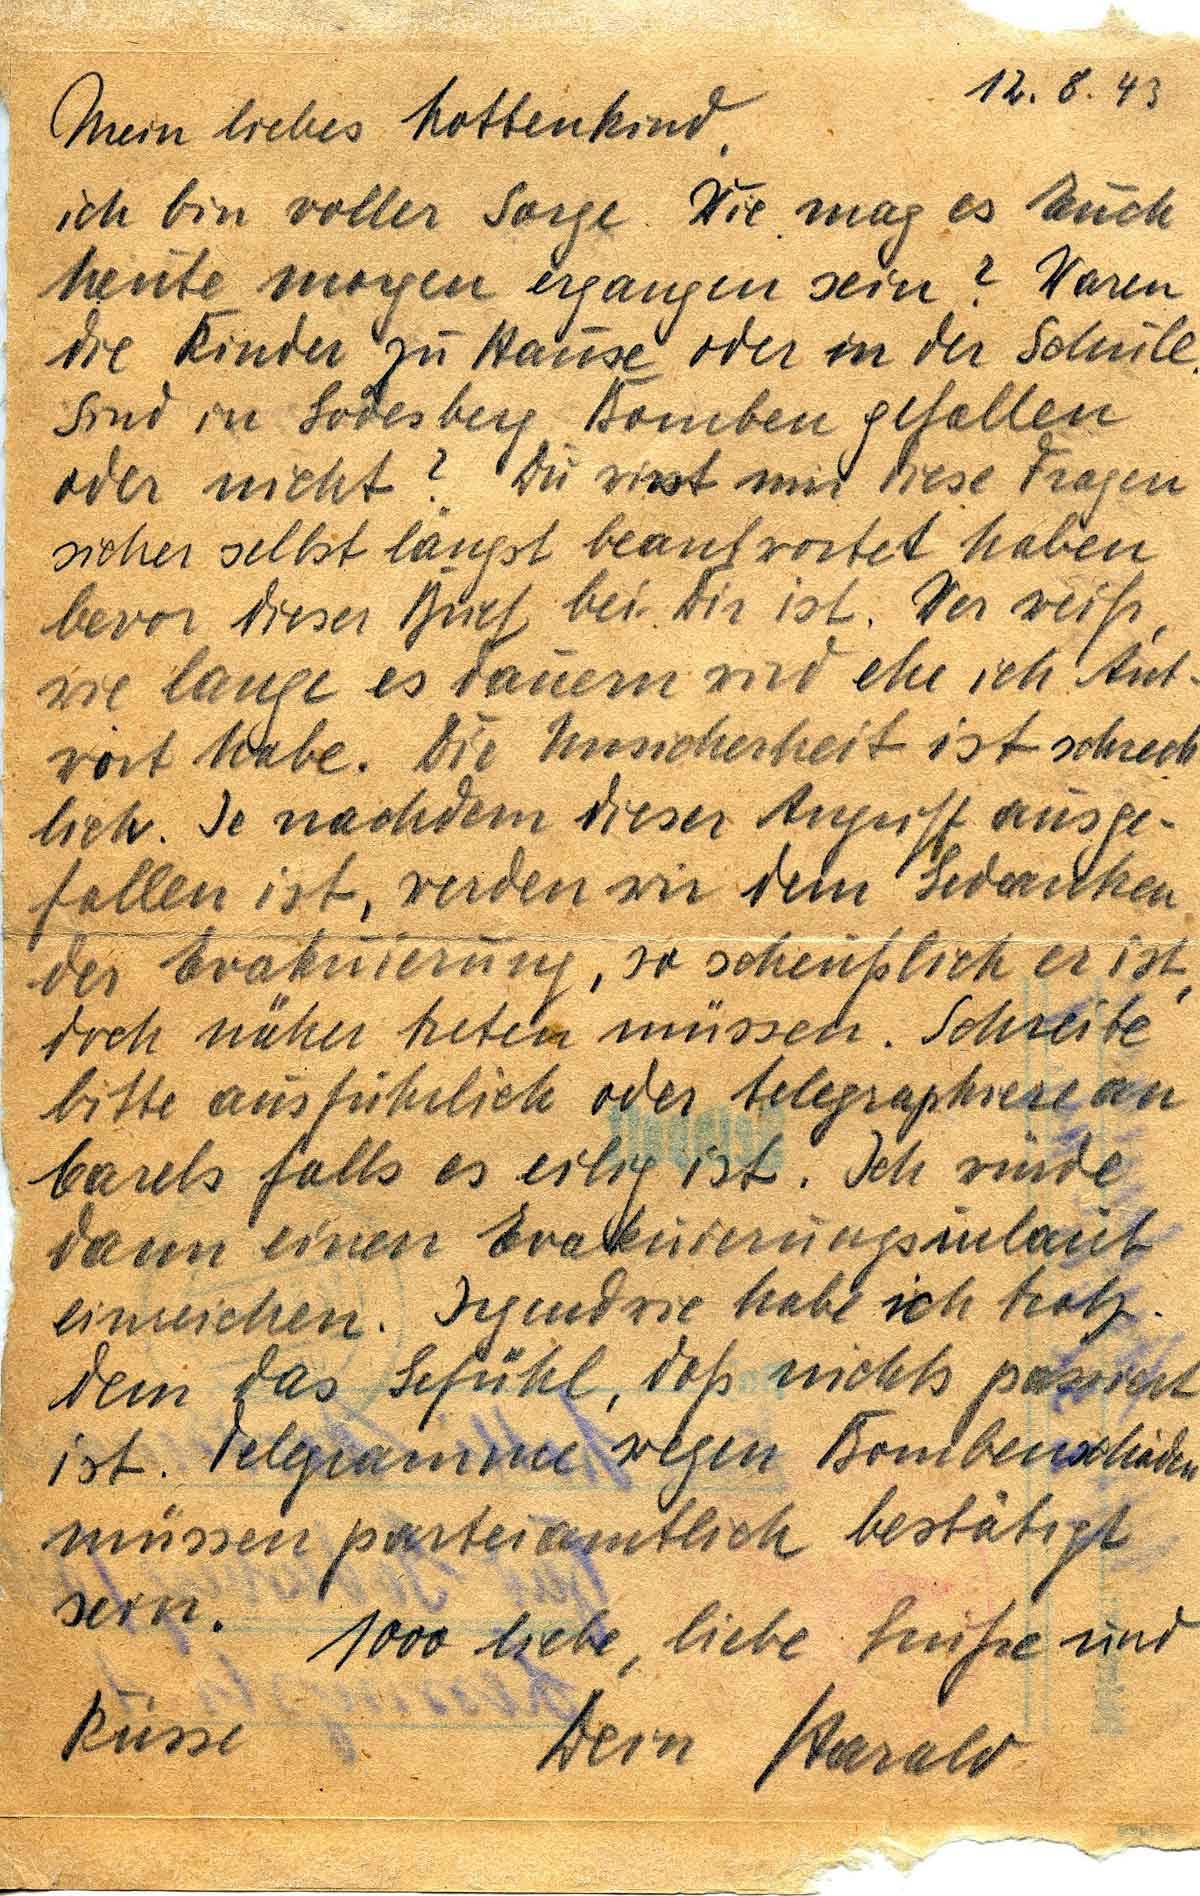 12. 8. 43
Mein liebes Lottenkind,
ich bin voller Sorge. Wie mag es Euch
heute morgen ergangen sein? Waren
die Kinder zu Hause oder in der Schule.
Sind in Godesberg Bomben gefallen
oder nicht? Du wirst mir diese Fragen
sicher selbst längst beantwortet haben
bevor dieser Brief bei Dir ist. Wer weiß,
wie lange es dauern wird ehe ich Ant-
wort habe. Die Unsicherheit ist schreck
lich. Je nachdem dieser Angriff ausge-
fallen ist, werden wir dem Gedanken
der Evakuierung, so scheußlich er ist,
doch näher treten müssen. Schreibe
bitte ausführlich oder telegraphiere an
falls es eilig ist. Ich würde
dann einen Evakuierungsurlaub
einreichen. Irgendwie habe ich trotz-
dem das Gefühl, daß nichts passiert
ist. Telegramme wegen Bombenschäden
müssen parteiamtlich bestätigt
sein.
1000 liebe, liebe Grüße und
Küsse Dein Harald